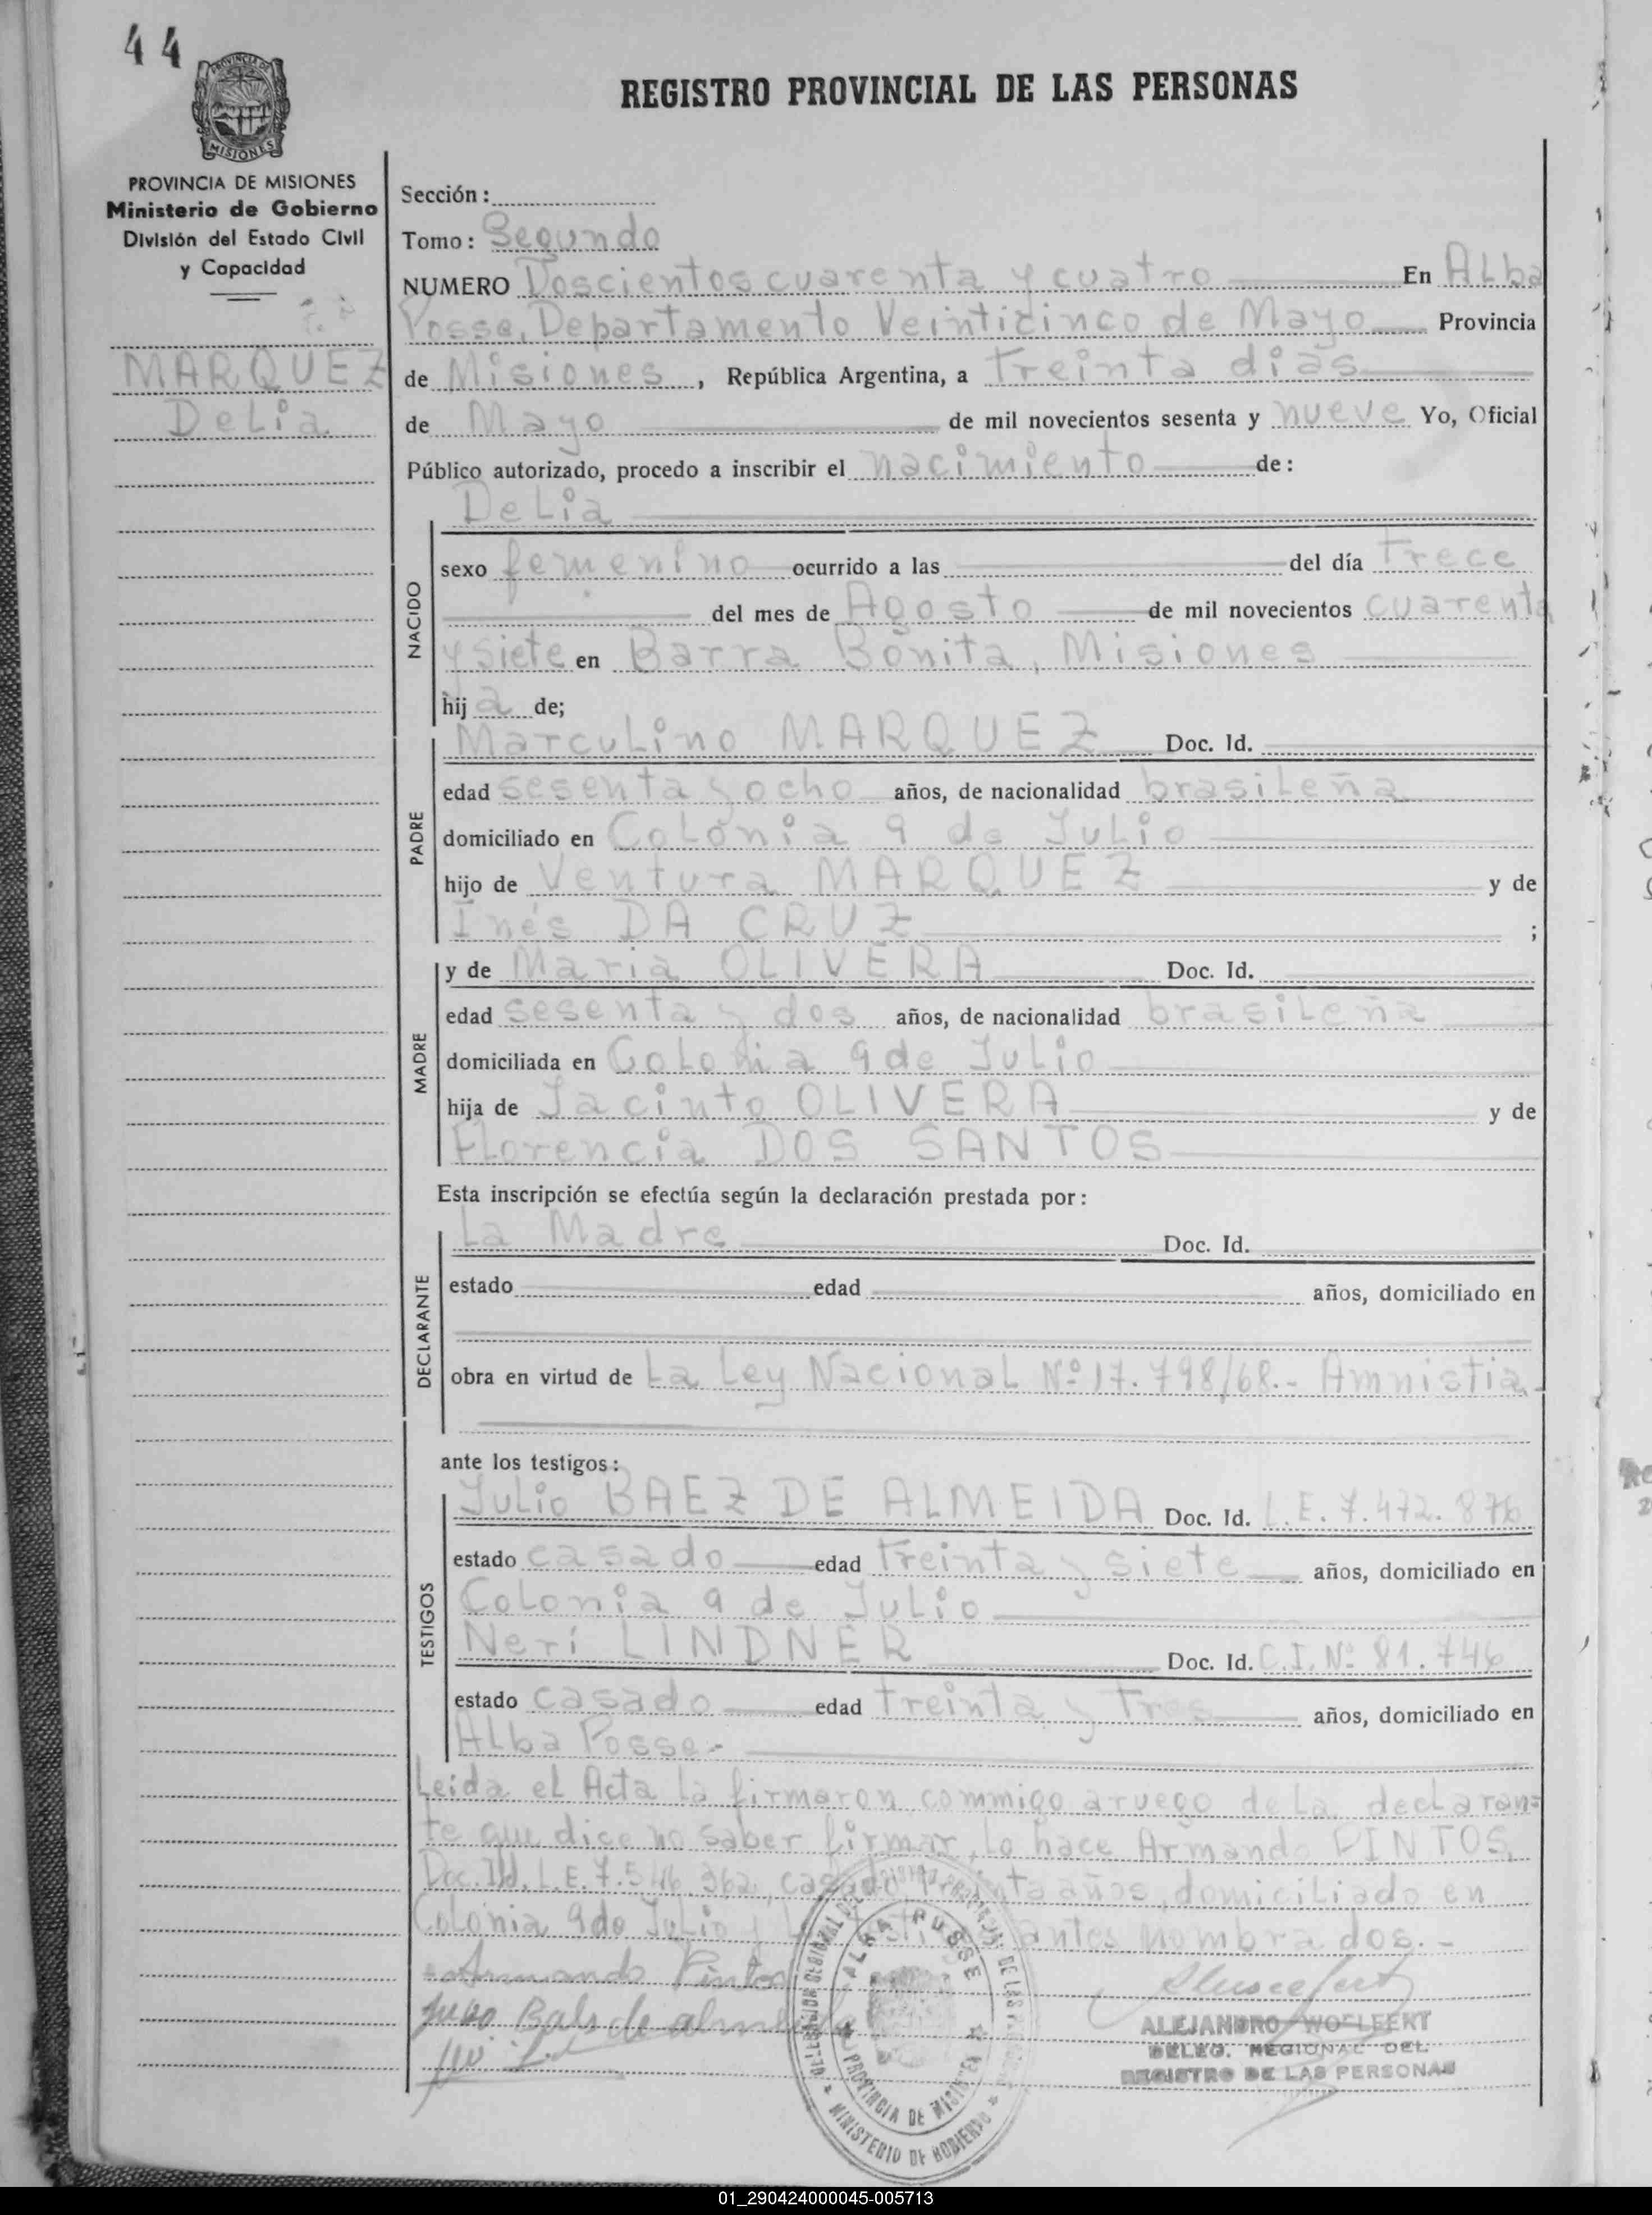 44
REGISTRO PROVINCIAL DE LAS PERSONAS
MISIONES
PROVINCIA DE MISIONES
Ministerio de Gobierno
División del Estado Civil
y Capacidad
MARQUEZ
Delia
Sección:
Tomo: Segundo
NUMERO Doscientos cuarenta y cuatro En Alba
Posse, Departamento Veinticinco de Mayo Provincia
de Misiones, República Argentina, a treinta dias
de Mayo de mil novecientos sesenta y nueve Yo, Oficial
Público autorizado, procedo a inscribir el nacimiento de:
Delia
NACIDO
sexo femenino ocurrido a las del día Trece
del mes de Agosto de mil novecientos cuarenta
y siete en Barra Bonita, Misiones
hija de;
PADRE
Marculino MARQUEZ Doc. Id.
edad sesenta y ocho años, de nacionalidad brasileña
domiciliado en Colonia 9 de Julio
hijo de Ventura MARQUEZ y de
Inés DA CRUZ ;
MADRE
y de Maria OLIVERA Doc. Id.
edad sesenta y dos años, de nacionalidad brasileña
domiciliada en Colonia 9 de Julio
hija de Jacinto OLIVERA y de
Florencia DOS SANTOS
Esta inscripción se efectúa según la declaración prestada por:
DECLARANTE
La Madre Doc. Id.
estado edad años, domiciliado en
obra en virtud de La Ley Nacional Nº 17.798/68.- Amnistia.-
ante los testigos:
TESTIGOS
Julio BAEZ DE ALMEIDA Doc. Id. L.E. 7.472.876
estado casado edad treinta y siete años, domiciliado en
Colonia 9 de Julio
Neri LINDNER Doc. Id. C.I. Nº 81.746
estado casado edad treinta y tres años, domiciliado en
Alba Posse.-
Leida el Acta la firmaron commigo a ruego de la declaran=
te que dice no saber firmar, lo hace Armando PINTOS,
Doc. Id. L.E. 7.546.362, casado, treinta años, domiciliado en
Colonia 9 de Julio y antes nombrados.-
Armando Pintos
ALBA POSSE
PROVINCIA DE MISIONES
MINISTERIO DE GOBIERNO
ALEJANDRO WOLFEERT
DELEG. REGIONAL DEL
REGISTRO DE LAS PERSONAS
01_290424000045-005713